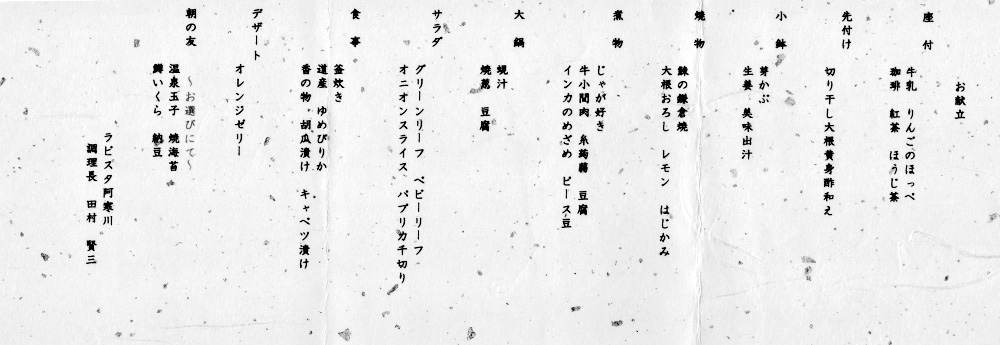 お献立
座付
牛乳 りんごのほっぺ
珈琲 紅茶 ほうじ茶
先付け
切り干し大根黄身酢和え
小鉢
芽かぶ
生姜 美味出汁
焼物
鰊の鎌倉焼
大根おろし レモン はじかみ
煮物
じゃが好き
牛小間肉 糸蒟蒻 豆腐
インカのめざめ ピース豆
大鍋
蜆汁
焼葱 豆腐
サラダ
グリーンリーフ ベビーリーフ
オニオンスライス パプリカ千切り
食事
釜炊き
道産 ゆめぴりか
香の物 胡瓜漬け キャベツ漬け
デザート
オレンジゼリー
朝の友
～お選びにて～
温泉玉子 焼海苔
鱒いくら 納豆
ラビスタ阿寒川
調理長 田村 賢三